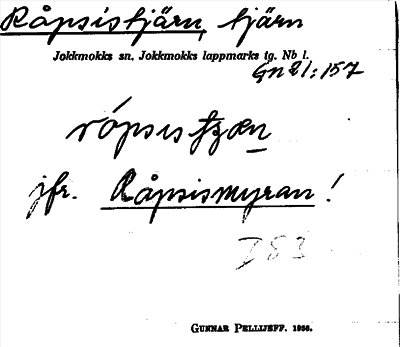 Råpsistjärn, tjärn
Jokkmokks sn. Jokkmokks lappmarks tg. Nb l.
Gn 21:157
rópsistjæn
jfr. Råpsismyran!
D 53
GUNNAR PELLIJEFF. 1956.